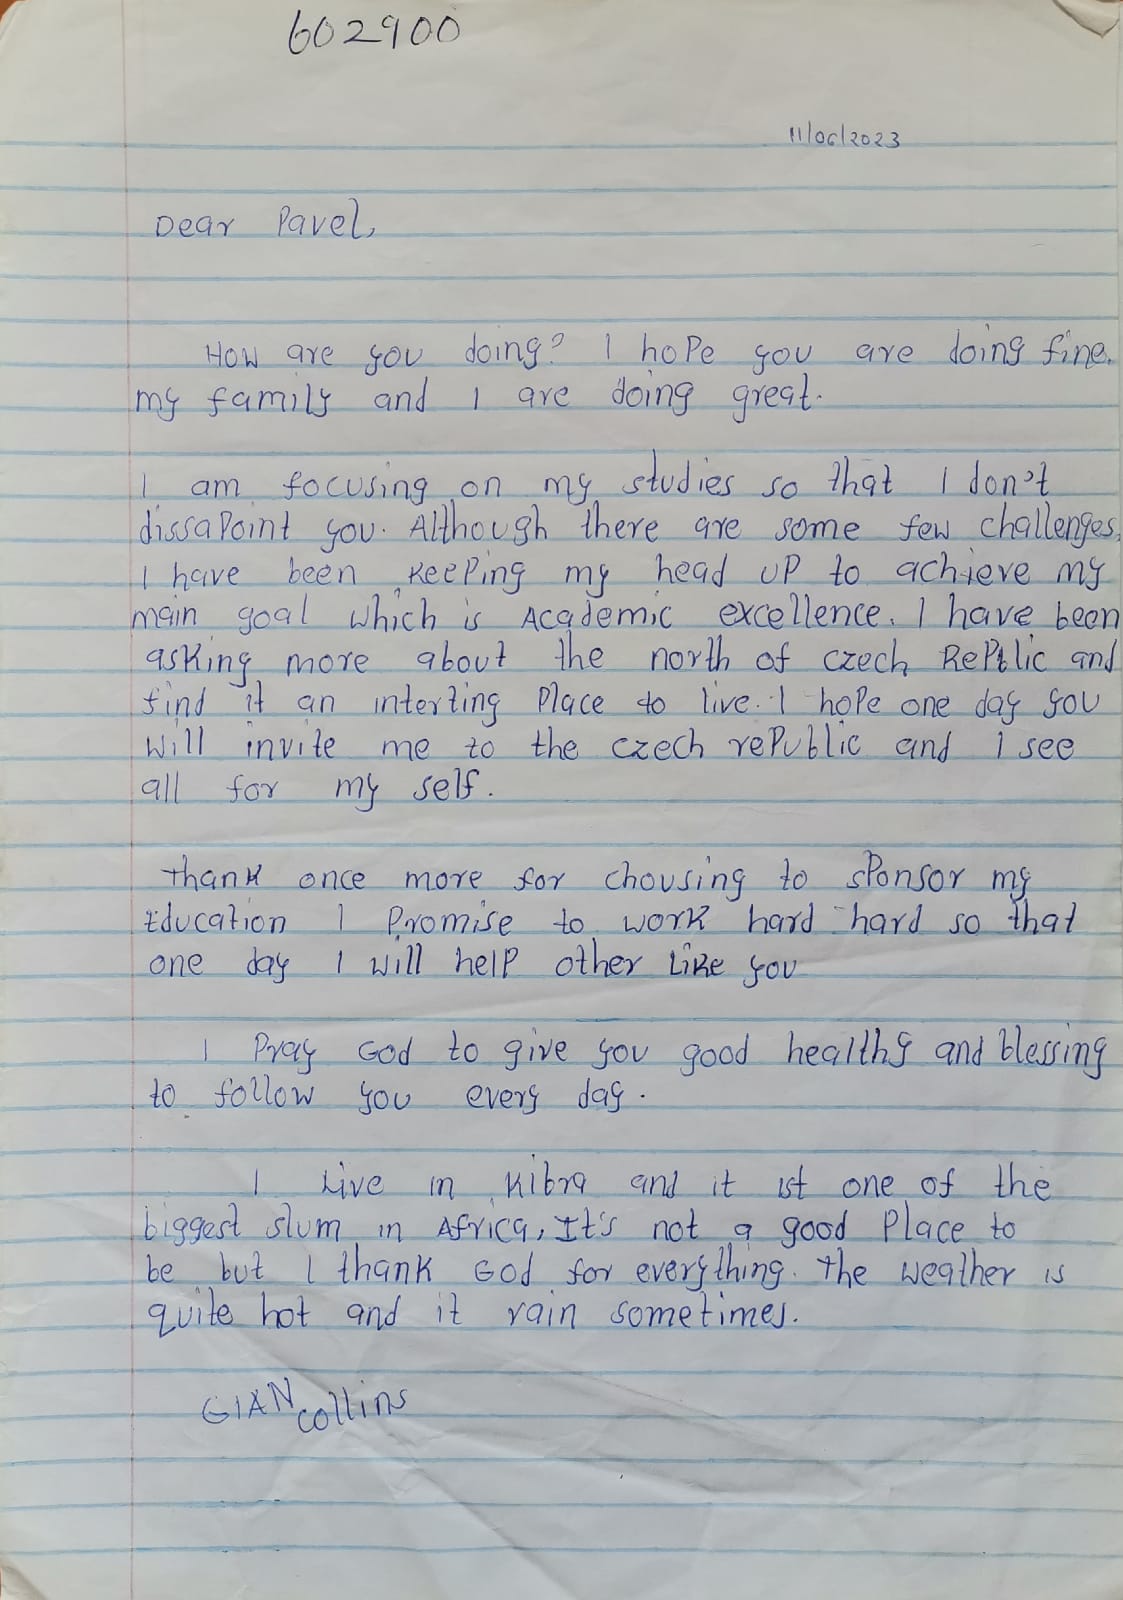 602900
11/06/2023
Dear Pavel,
How are you doing? I hope you are doing fine.
my family and I are doing great.
I am focusing on my studies so that I don't
dissapoint you. Although there are some few challenges,
I have been keeping my head up to achieve my
main goal which is Academic excellence. I have been
asking more about the north of czech Reptlic and
find it an interting place to live. I hope one day you
will invite me to the czech republic and I see
all for my self.
thank once more for chousing to sponsor my
Education I promise to work hard hard so that
one day I will help other like you
I pray God to give you good healthy and blessing
to follow you every day.
I Live in Kibra and it ist one of the
biggest slum in Africa, It's not a good place to
be but I thank God for everything. the weather is
quite hot and it rain sometimes.
GIAN collins